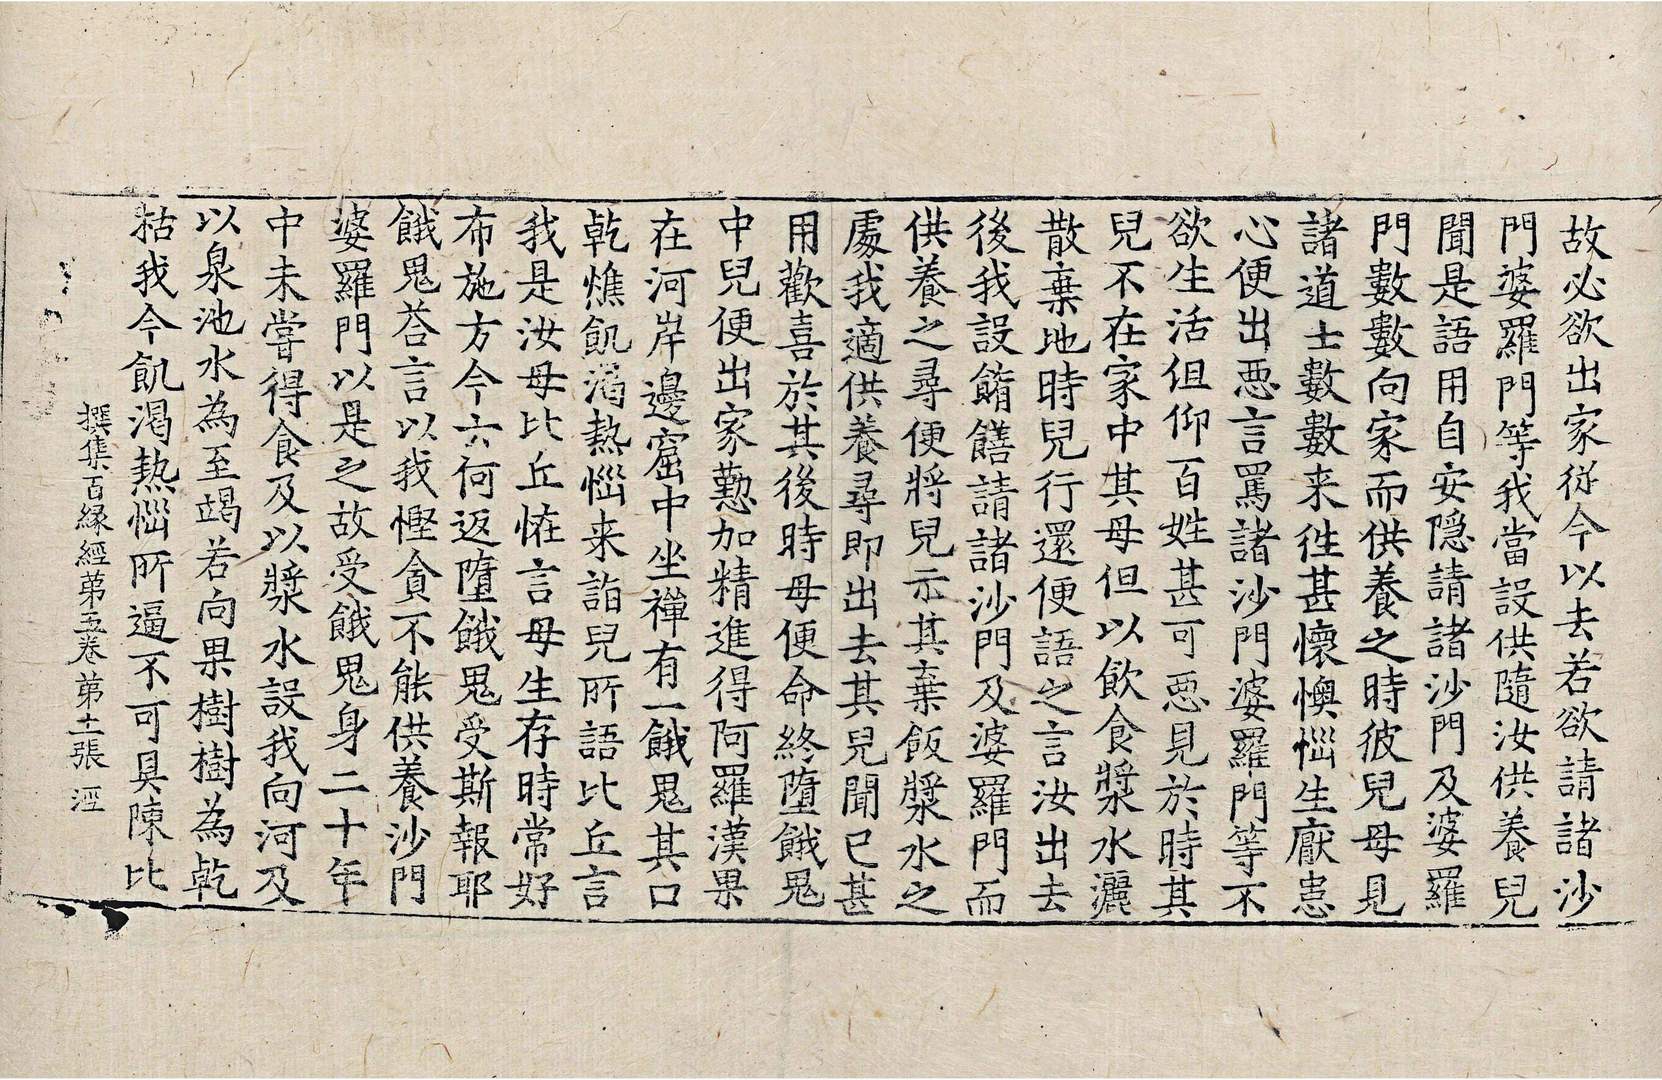 故必欲出家従今以去若欲請諸沙
門婆羅門等我當設供隨汝供養兒
聞是語用自安隠請諸沙門及婆羅
門數數向家而供養之時彼兒母見
諸道士數數来徃甚懷懊惱生厭患
心便出惡言罵諸沙門婆羅門等不
欲生活但仰百姓甚可惡見於時其
兒不在家中其母但以飲食漿水灑
散棄地時兒行還便語之言汝出去
後我設餚饍請諸沙門及婆羅門而
供養之尋便將兒示其棄飯漿水之
處我適供養尋即出去其兒聞已甚
用歡喜於其後時母便命終墮餓鬼
中兒便出家懃加精進得阿羅漢果
在河岸邊窟中坐禪有一餓鬼其口
乾燋飢渴熱惱来詣兒所語比丘言
我是汝母比丘恠言母生存時常好
布施方今云何返墮餓鬼受斯報耶
餓鬼荅言以我慳貪不能供養沙門
婆羅門以是之故受餓鬼身二十年
中未嘗得食及以漿水設我向河及
以泉池水為至竭若向果樹樹為乾
枯我今飢渴熱惱所逼不可具陳比
撰集百緣經苐五卷苐十一張 淫